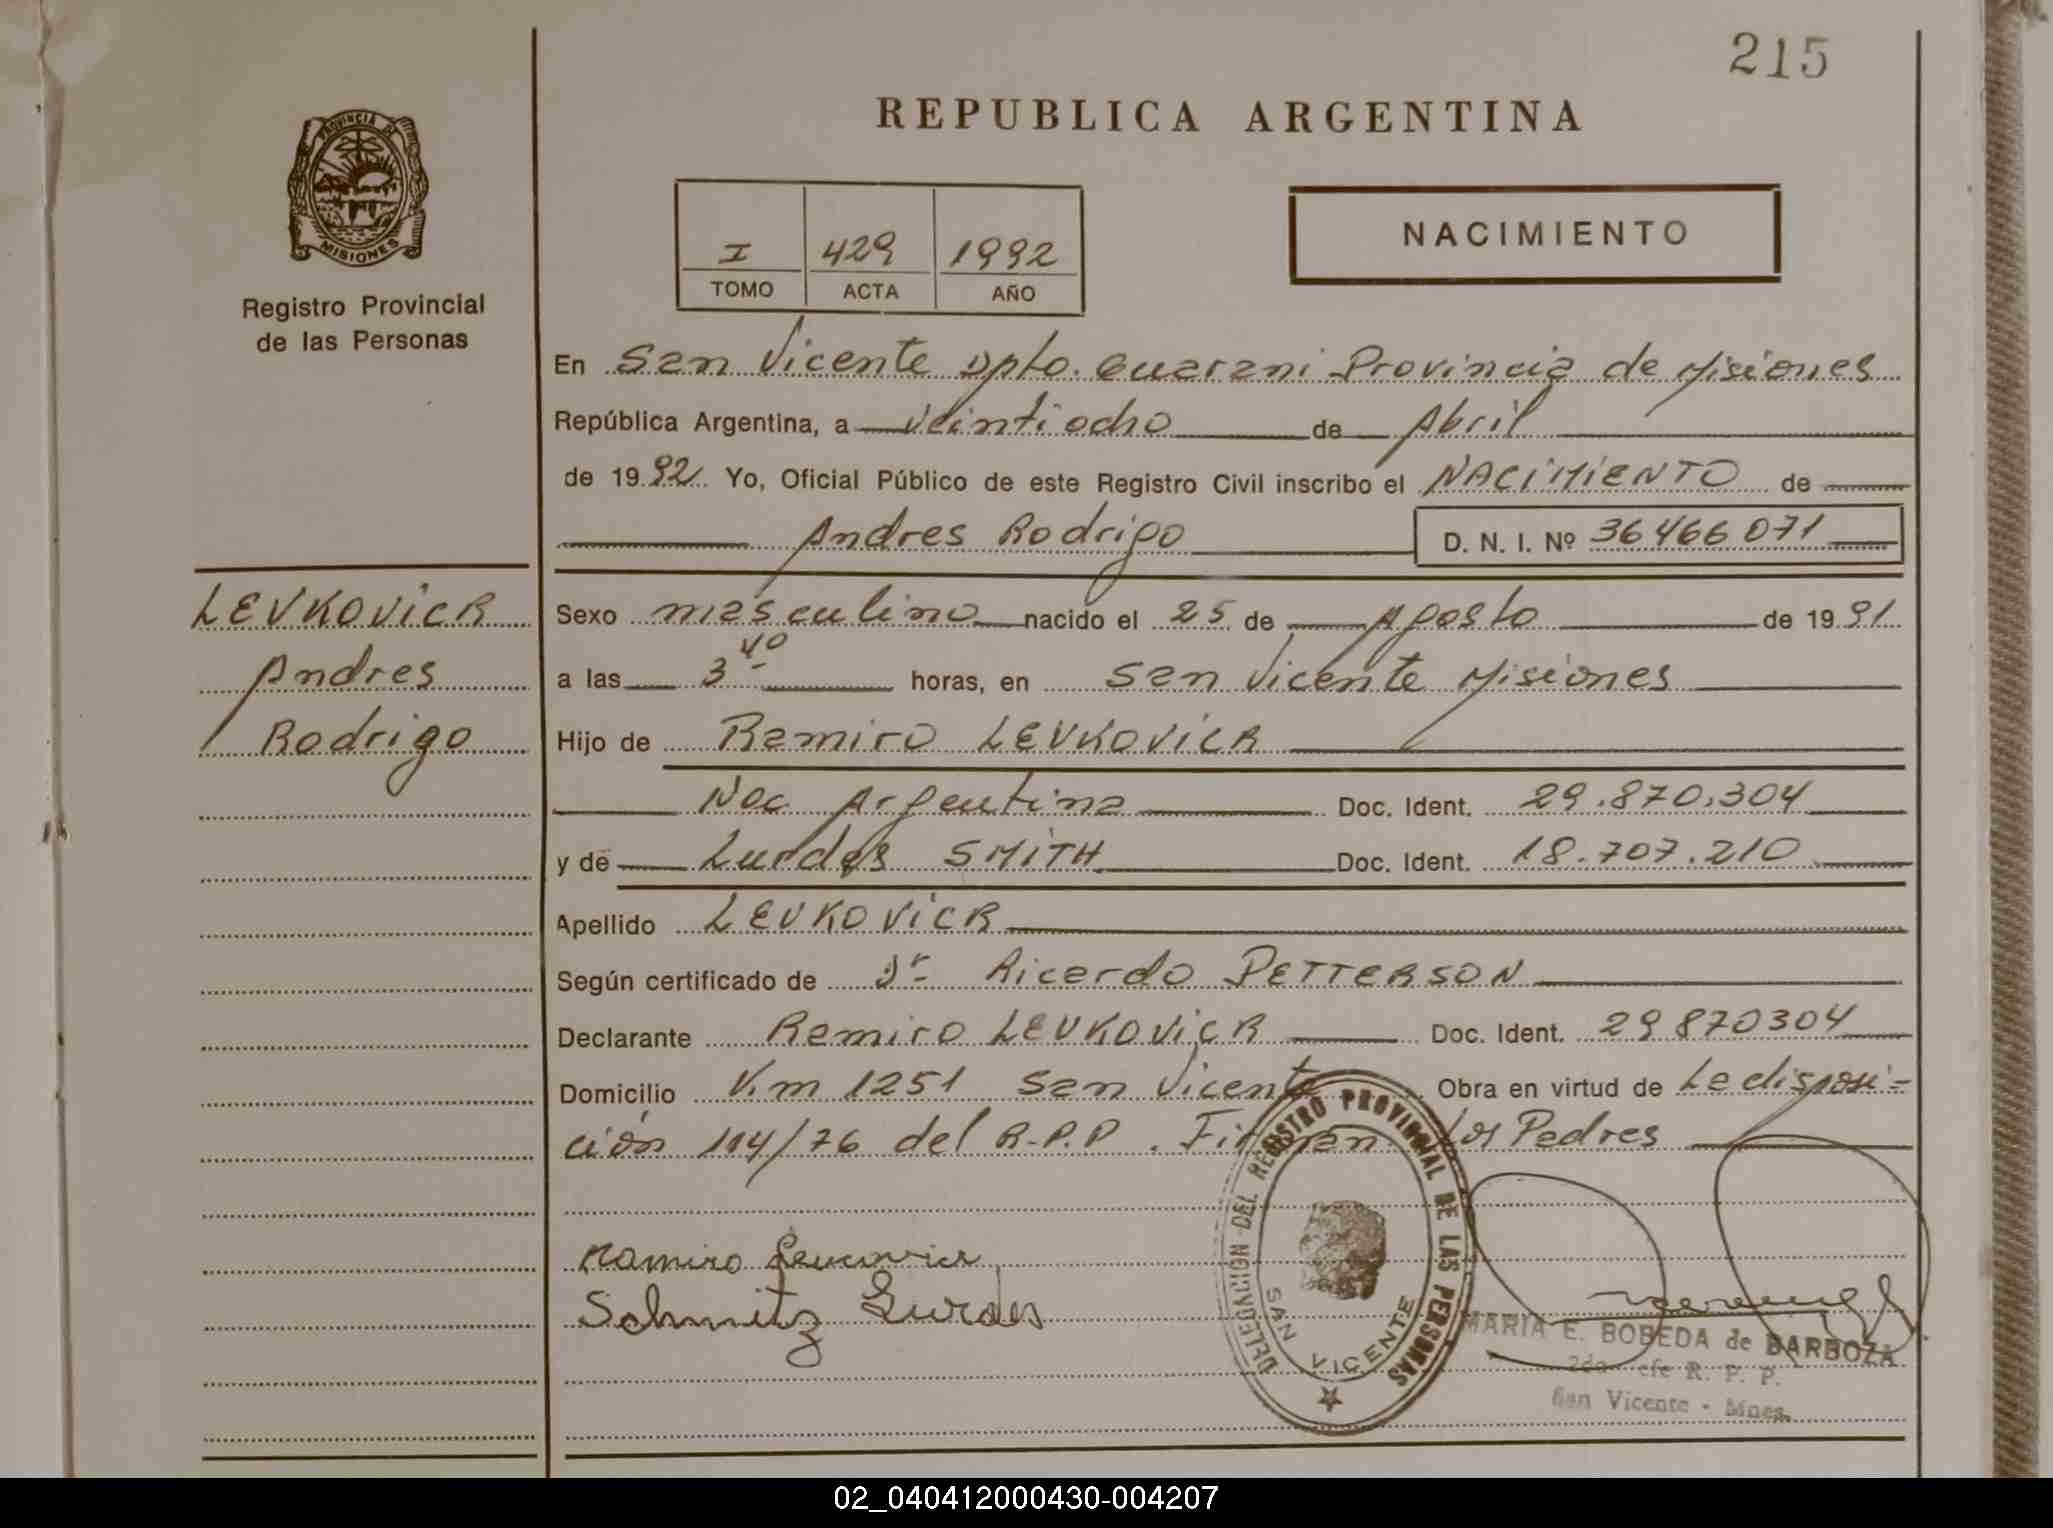 215
REPUBLICA ARGENTINA
PROVINCIA DE
MISIONES
Registro Provincial
de las Personas
I 429 1992
TOMO ACTA AÑO
NACIMIENTO
En San Vicente Dpto. Guarani Provincia de Misiones
República Argentina, a veintiocho de Abril
de 1992 Yo, Oficial Público de este Registro Civil inscribo el NACIMIENTO de
Andres Rodrigo D. N. I. Nº 36466071
LEVKOVICR
Andres
Rodrigo
Sexo masculino nacido el 25 de Agosto de 1991
a las 3 40 horas, en San Vicente Misiones
Hijo de Ramiro LEVKOVICR
Nac Argentina Doc. Ident. 29.870.304
y de Lurdes SMITH Doc. Ident. 18.707.210
Apellido LEVKOVICR
Según certificado de Dr Ricardo PETTERSON
Declarante Ramiro LEVKOVICR Doc. Ident. 29870304
Domicilio Km 1251 San Vicente Obra en virtud de La disposi=
ción 114/76 del R.P.P. Firman Los Padres
Ramiro
Schmitz Lurdes
DELEGACION DEL REGISTRO PROVINCIAL DE LAS PERSONAS
SAN VICENTE
MARIA E. BOBEDA de BARBOZA
R. P. P.
San Vicente - Mnes.
02_040412000430-004207